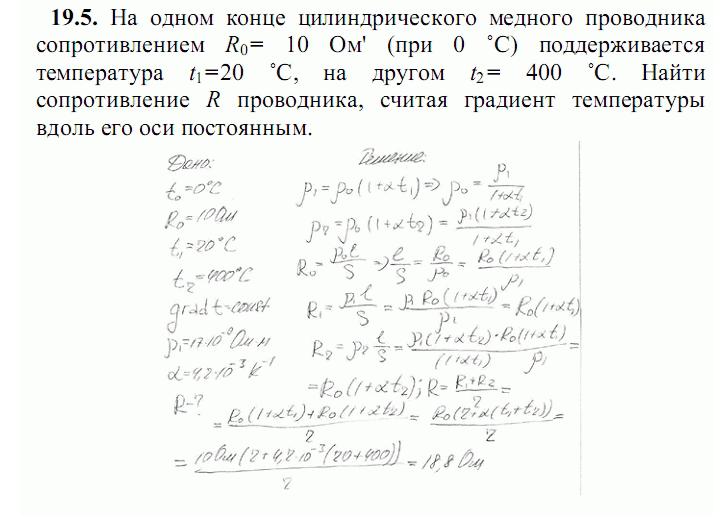 19.5. На одном конце цилиндрического медного проводника
сопротивлением R₀= 10 Ом' (при 0 ˚С) поддерживается
температура t₁=20 ˚С, на другом t₂= 400 ˚С. Найти
сопротивление R проводника, считая градиент температуры
вдоль его оси постоянным.
Дано:
t₀=0°C
R₀=10Ом
t₁=20°C
t₂=400°C
grad t=const
ρ₁=17·10⁻⁹Ом·м
α=4,2·10⁻³ K⁻¹
R-?
Решение:
ρ₁=ρ₀(1+αt₁)=>ρ₀=ρ₁/(1+αt₁)
ρ₂=ρ₀(1+αt₂)=ρ₁(1+αt₂)/(1+αt₁)
R₀=ρ₀l/S=>l/S=R₀/ρ₀=R₀(1+αt₁)/ρ₁
R₁=ρ₁l/S=ρ₁R₀(1+αt₁)/ρ₁=R₀(1+αt₁)
R₂=ρ₂ l/S=ρ₁(1+αt₂)·R₀(1+αt₁)/(1+αt₁)ρ₁=
=R₀(1+αt₂); R=(R₁+R₂)/2=
=(R₀(1+αt₁)+R₀(1+αt₂))/2=R₀(2+α(t₁+t₂))/2=
=10Ом(2+4,2·10⁻³(20+400))/2=18,8 Ом